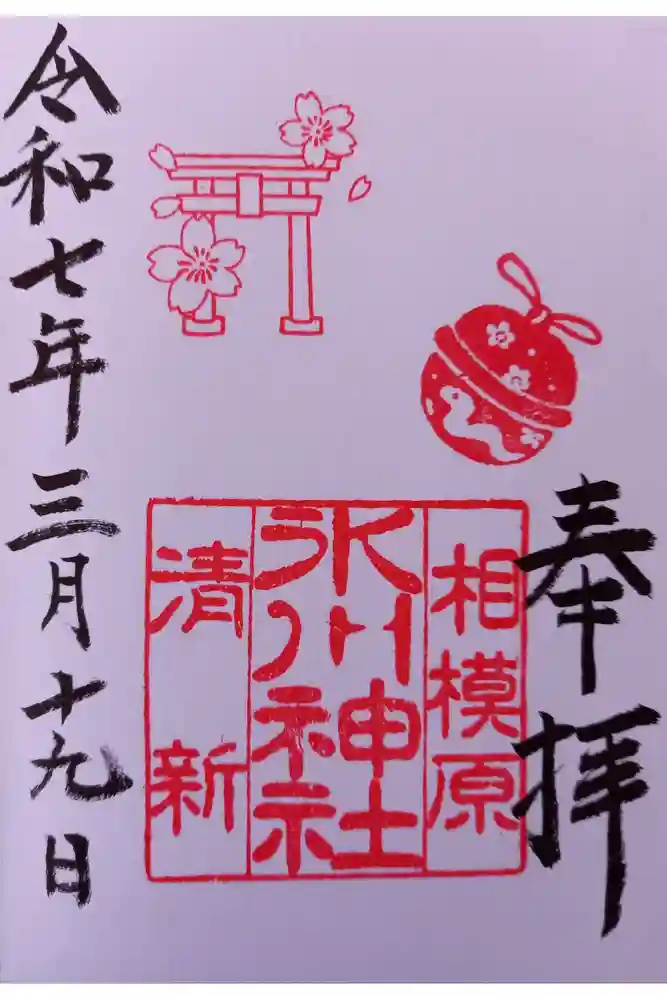 奉拝
相模原
氷川神社
清新
令和七年三月十九日